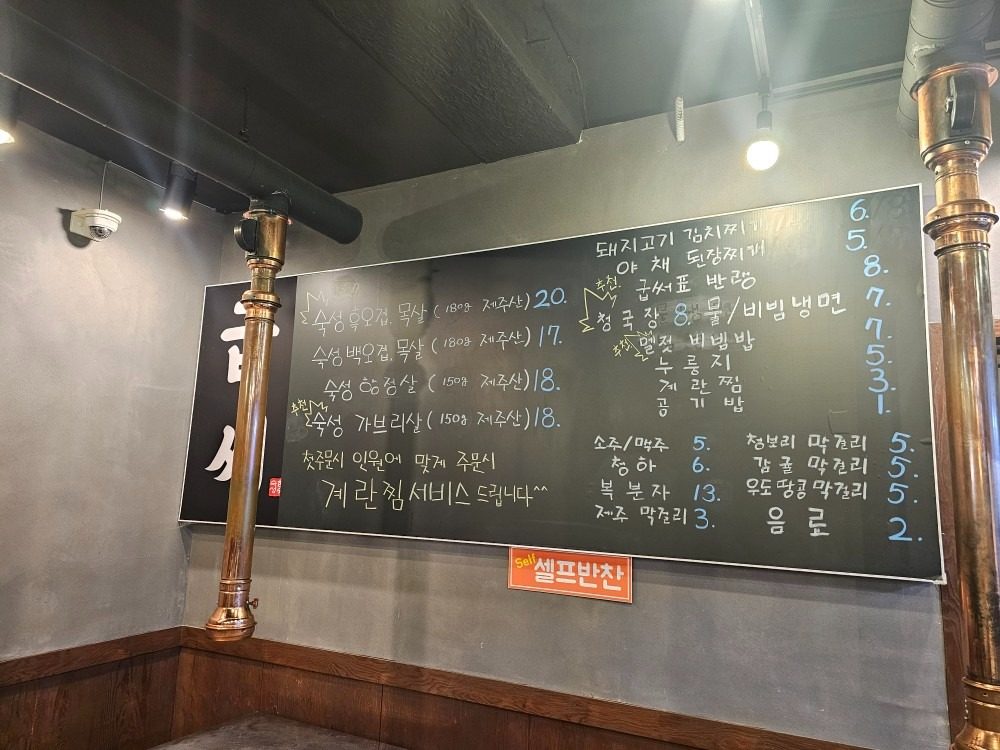 급
추천
숙성 흑오겹, 목살 (180g 제주산) 20.
숙성 백오겹, 목살 (180g 제주산) 17.
숙성 항정살 (150g 제주산) 18.
추천
숙성 가브리살 (150g 제주산) 18.
첫주문시 인원에 맞게 주문시
계란찜서비스 드립니다^^
돼지고기 김치찌개 6.
야채 된장찌개 5.
급써표 반랭 8.
추천
청국장 8. 물/비빔냉면 7.
추천
멜젓 비빔밥 7.
누룽지 5.
계란찜 3.
공기밥 1.
소주/맥주 5.
청하 6.
복분자 13.
제주 막걸리 3.
청보리 막걸리 5.
감귤 막걸리 5.
우도땅콩막걸리 5.
음료 2.
Self
셀프반찬